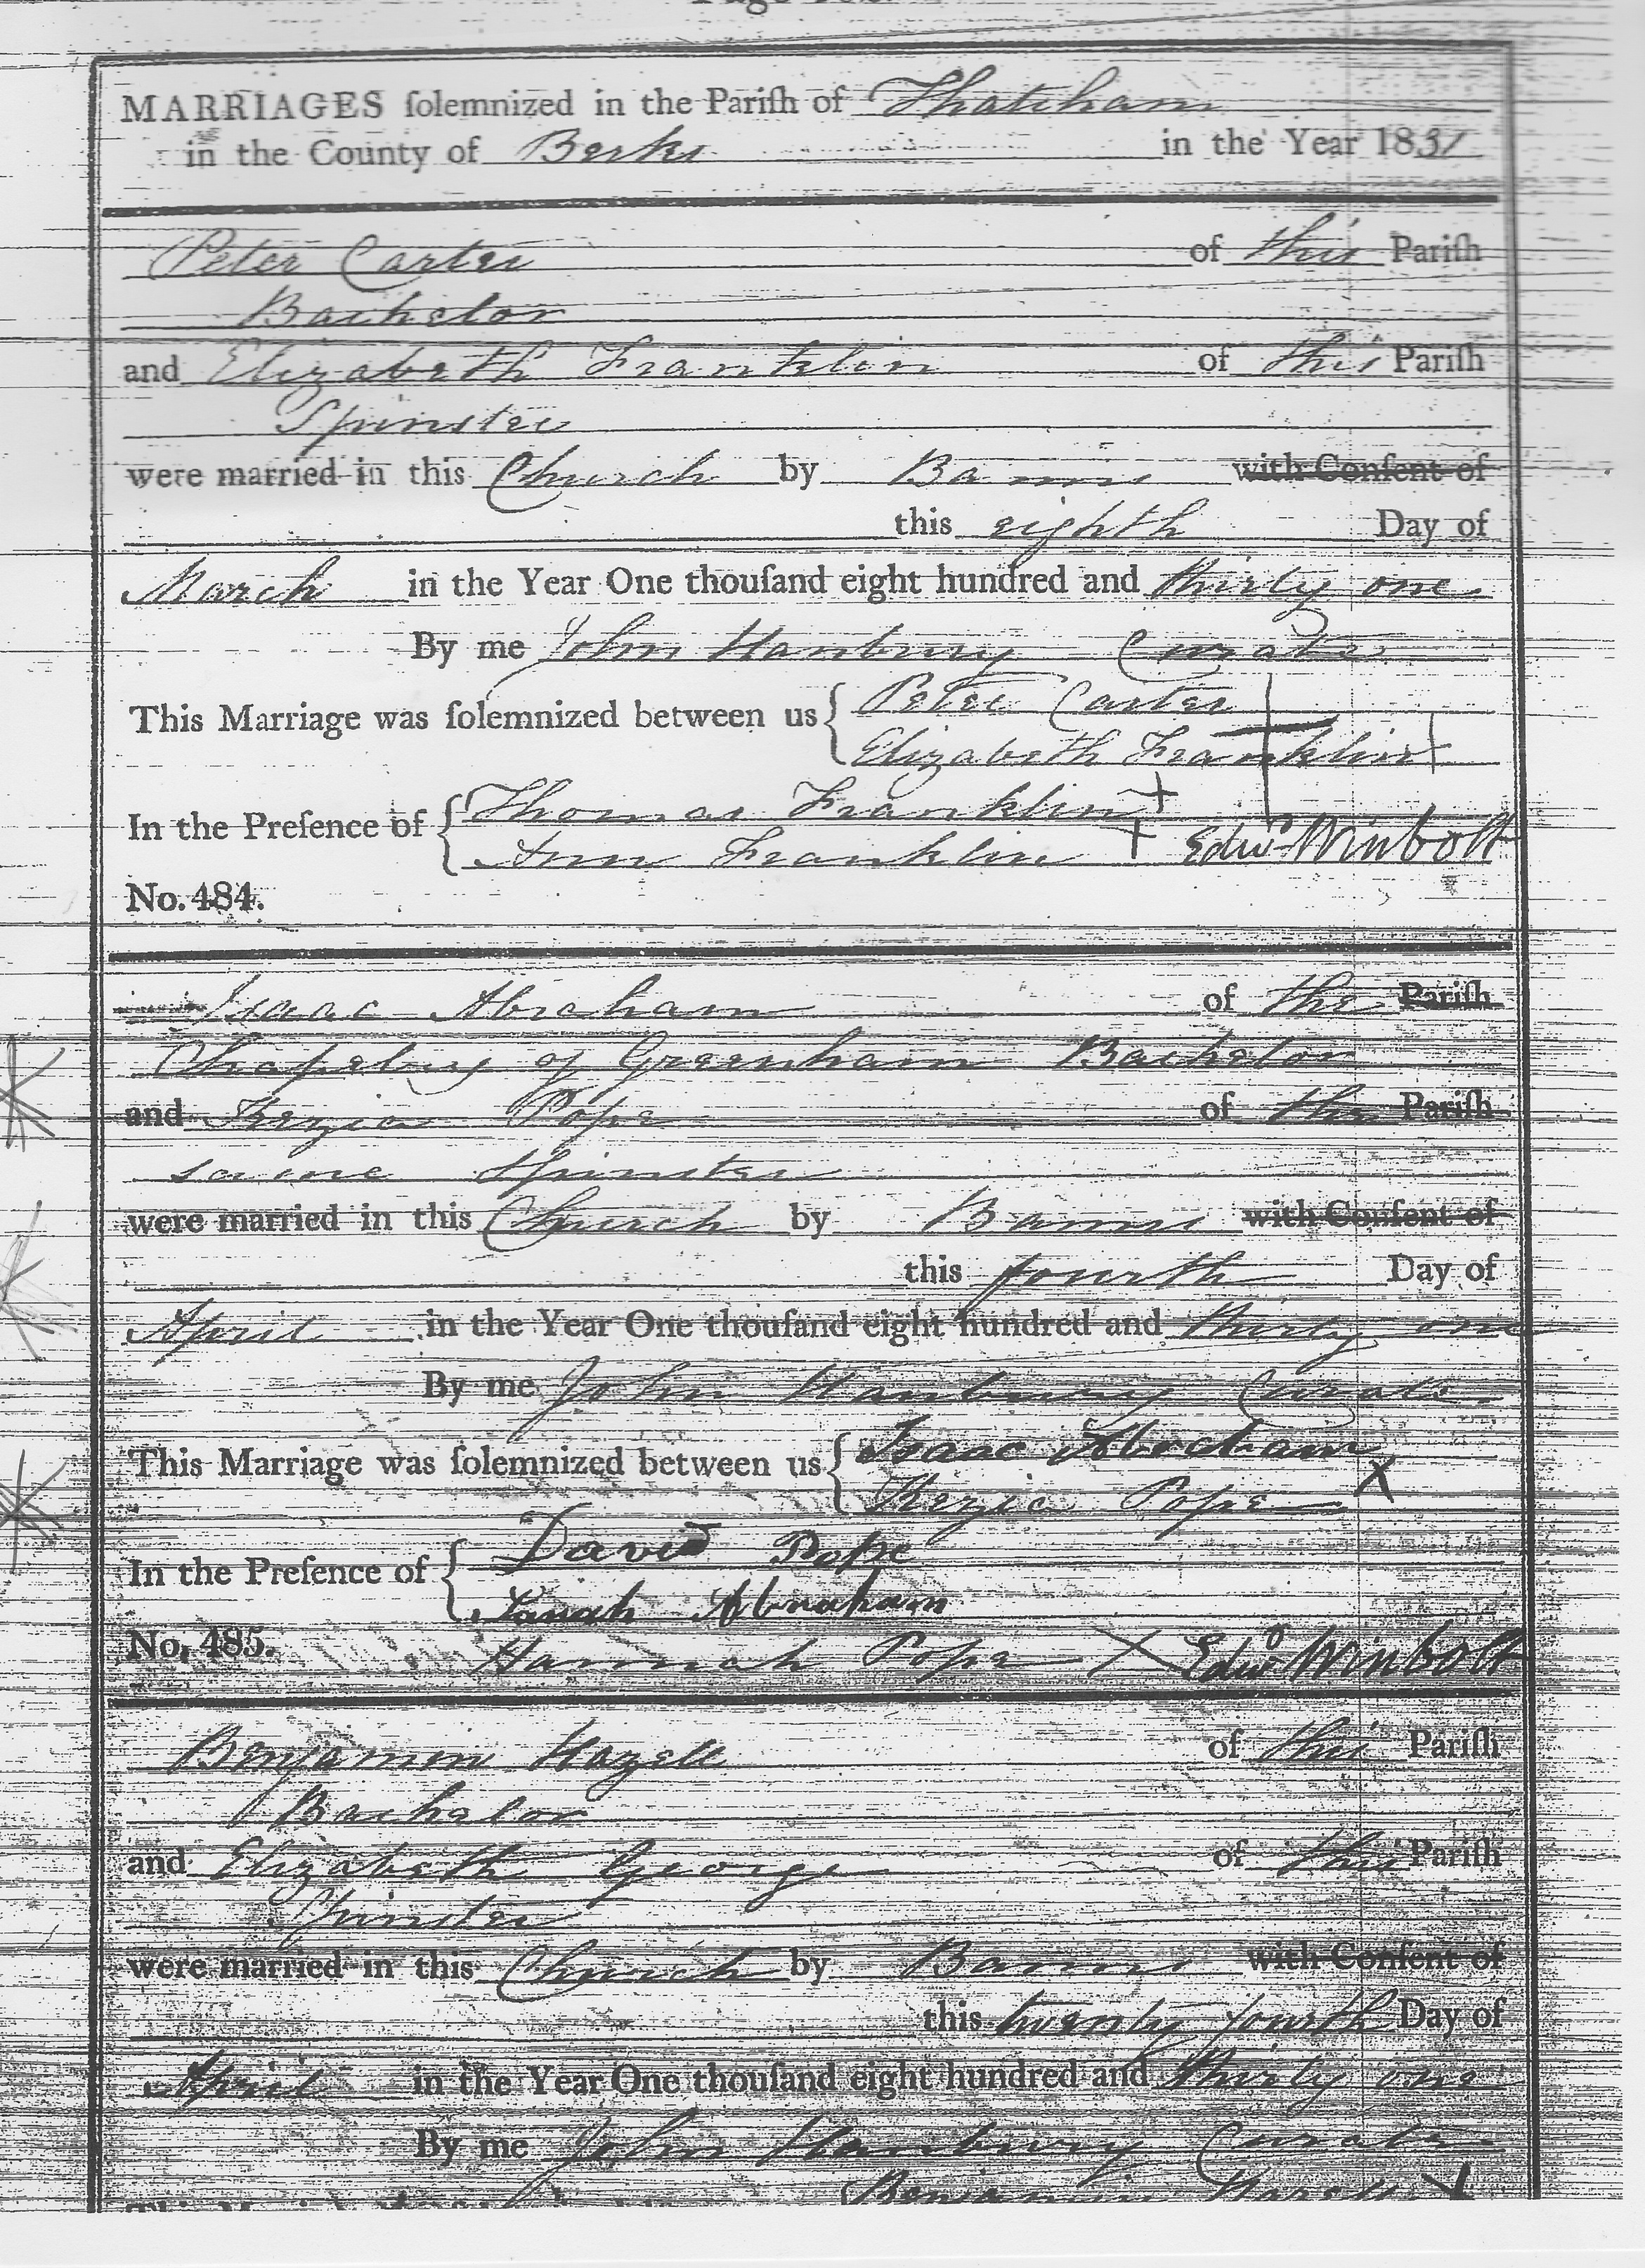 MARRIAGES ſolemnized in the Pariſh of Thatcham
in the County of Berks in the Year 1831
Peter Carter of this Pariſh
Bachelor
and Elizabeth Franklin of this Pariſh
Spinster
were married in this Church by Banns with Conſent of
this eighth Day of
March in the Year One thouſand eight hundred and thirty one
By me John Hanbury Curate
This Marriage was ſolemnized between us { Peter Carter +
Elizabeth Franklin +
In the Preſence of { Thomas Franklin +
Ann Franklin + Edwd Winbolt
No. 484.
Isaac Abraham of the Pariſh
Chapelry of Greenham Bachelor
and Kezia Pope of the Pariſh
same Spinster
were married in this Church by Banns with Conſent of
this fourth Day of
April in the Year One thouſand eight hundred and thirty one
By me John Hanbury Curate
This Marriage was ſolemnized between us { Isaac Abraham
Kezia Pope X
In the Preſence of { David Pope
Sarah Abraham
No. 485. Hannah Pope X Edwd Winbolt
Benjamin Hazell of this Pariſh
Bachelor
and Elizabeth George of this Pariſh
Spinster
were married in this Church by Banns with Conſent of
this twenty fourth Day of
April in the Year One thouſand eight hundred and thirty one
By me John Hanbury Curate
Benjamin